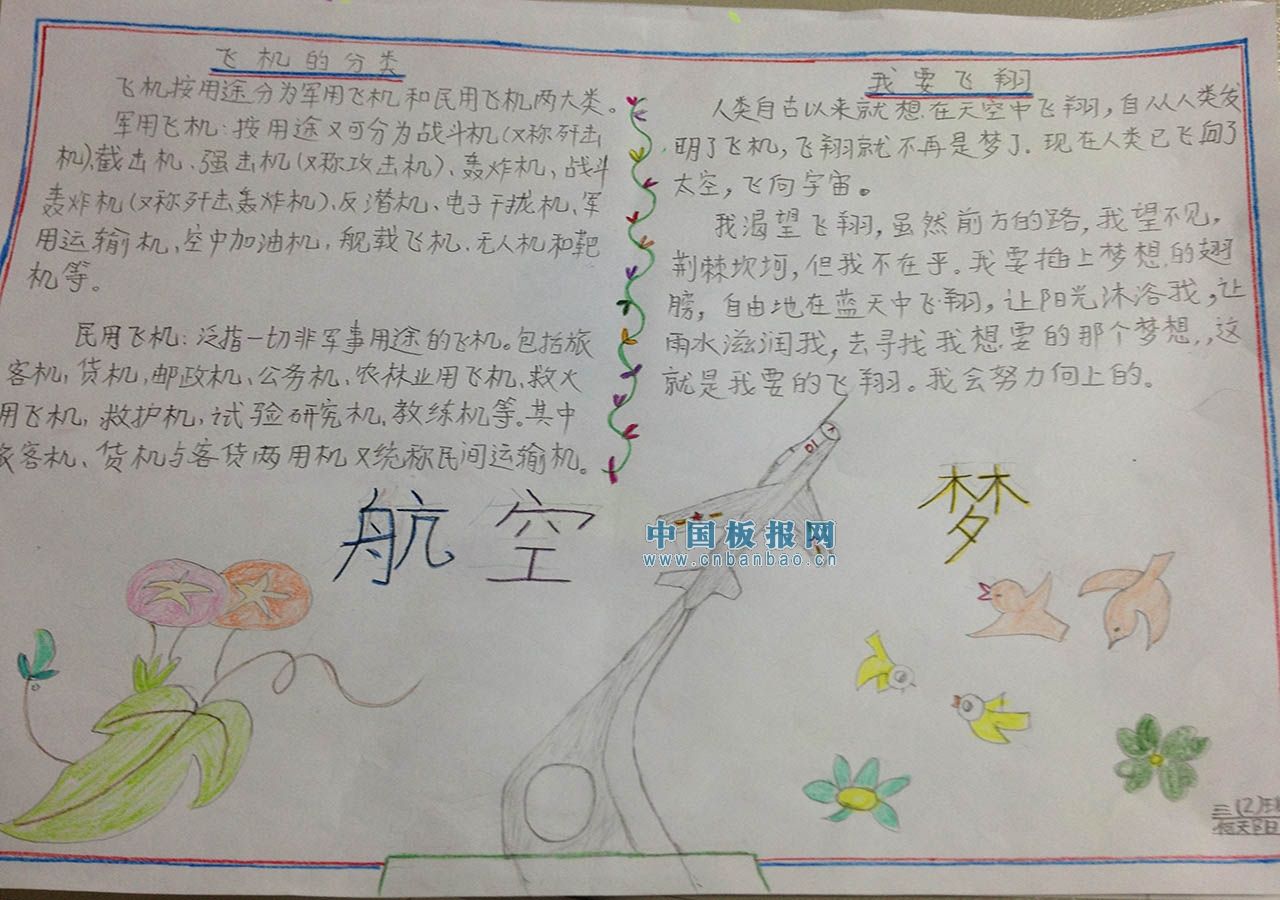 飞机的分类
飞机按用途分为军用飞机和民用飞机两大类。
军用飞机：按用途又可分为战斗机（又称歼击
机）、截击机、强击机（又称攻击机）、轰炸机，战斗
轰炸机（又称歼击轰炸机）、反潜机、电子干扰机、军
用运输机、空中加油机，舰载飞机、无人机和靶
机等。
民用飞机：泛指一切非军事用途的飞机。包括旅
客机，货机，邮政机、公务机、农林业用飞机、救火
用飞机，救护机，试验研究机、教练机等。其中
旅客机、货机与客货两用机又统称民间运输机。
我要飞翔
人类自古以来就想在天空中飞翔，自从人类发
明了飞机，飞翔就不再是梦了。现在人类已飞向了
太空，飞向宇宙。
我渴望飞翔，虽然前方的路，我望不见，
荆棘坎坷，但我不在乎。我要插上梦想的翅
膀，自由地在蓝天中飞翔，让阳光沐浴我，让
雨水滋润我，去寻找我想要的那个梦想，这
就是我要的飞翔。我会努力向上的。
航空
梦
中国板报网
www.cnbanbao.cn
三（2）班